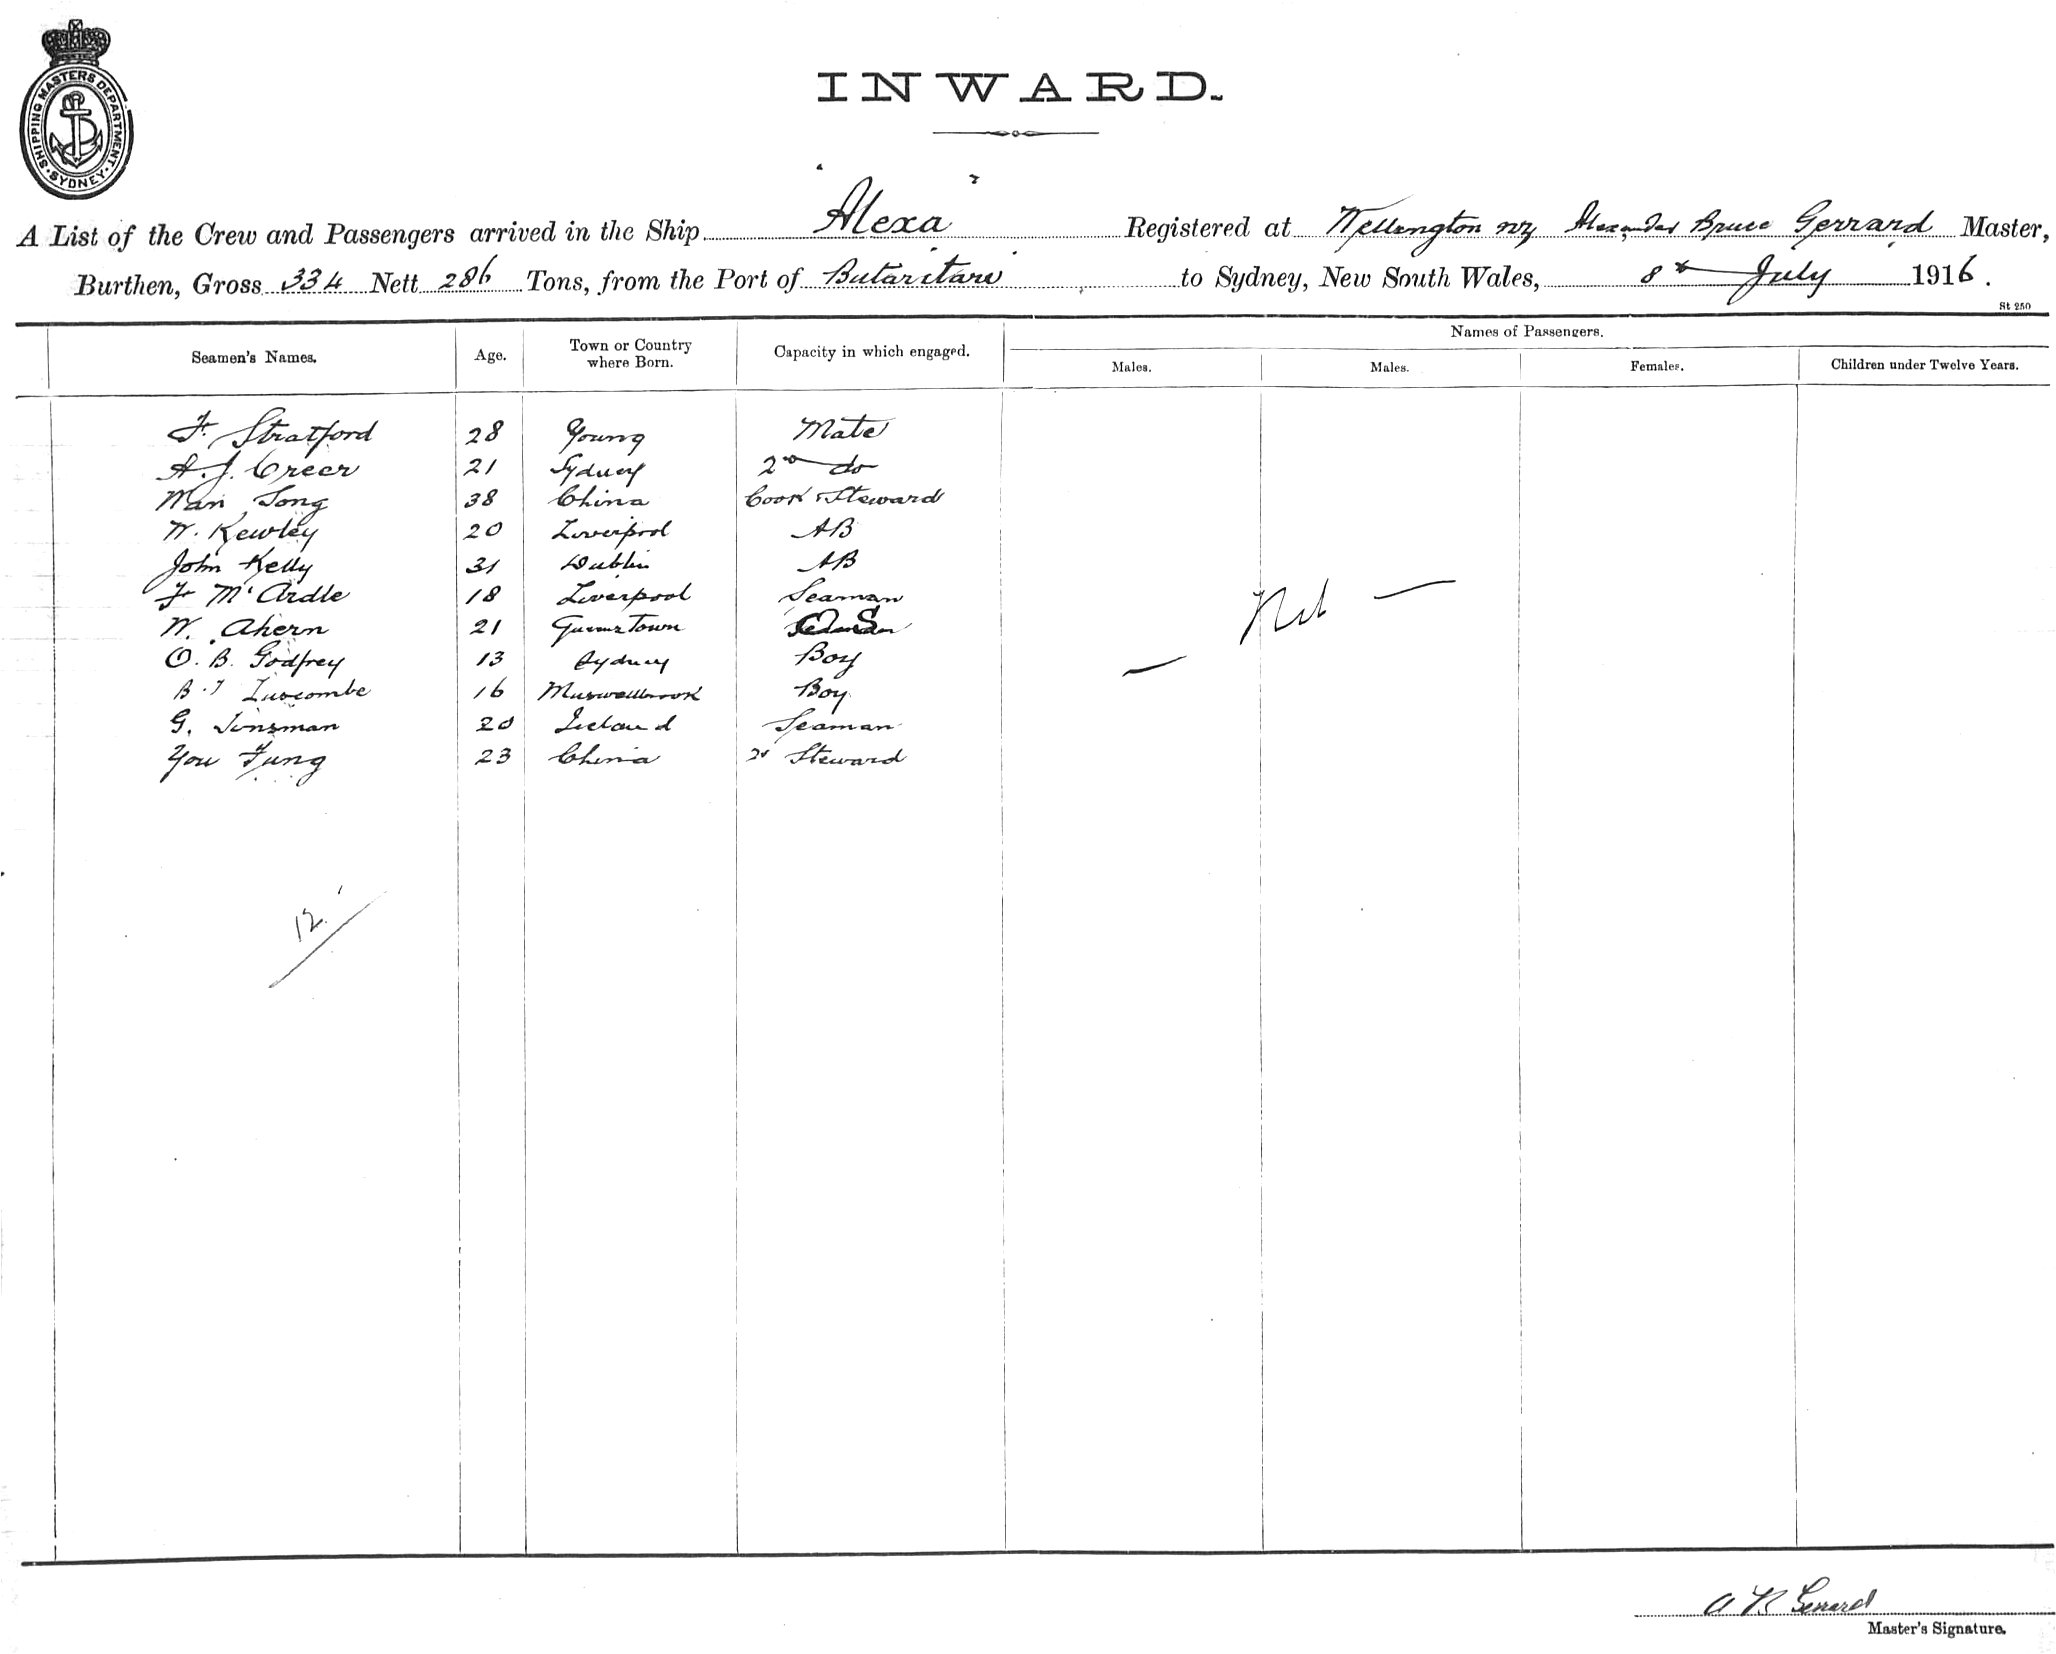 SHIPPING MASTERS DEPARTMENT
SYDNEY
INWARD.
A List of the Crew and Passengers arrived in the Ship "Alexa" Registered at Wellington NZ Alexander Bruce Gerrard Master,
Burthen, Gross 334 Nett 286 Tons, from the Port of Butaritari to Sydney, New South Wales, 8th July 1916.
St 250
Seamen's Names. Age. Town or Country where Born. Capacity in which engaged. Names of Passengers.
Males. Males. Females. Children under Twelve Years.
F. Stratford 28 Young Mate
A. J. Creer 21 Sydney 2nd do
Man Song 38 China Cook & Steward
W. Kewley 20 Liverpool AB
John Kelly 31 Dublin AB
F McArdle 18 Liverpool Seaman
W. Ahern 21 Queenstown OS
O. B. Godfrey 13 Sydney Boy
B. T Luscombe 16 Muswellbrook Boy
G. 20 Seaman
You Fung 23 China 2d Steward
— Nil —
12
A B Gerrard
Master's Signature.